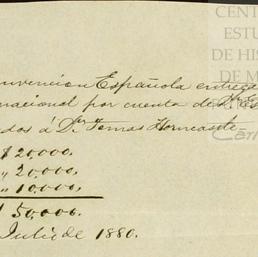 CENT
ESTU
DE HIS
DE M
Convencion Española entrega
nacional por cuenta de Dn
dos á Dn Tomas Horncastle
$ 20,000.
" 20,000.
" 10,000.
$ 50,000.
Julio de 1880.